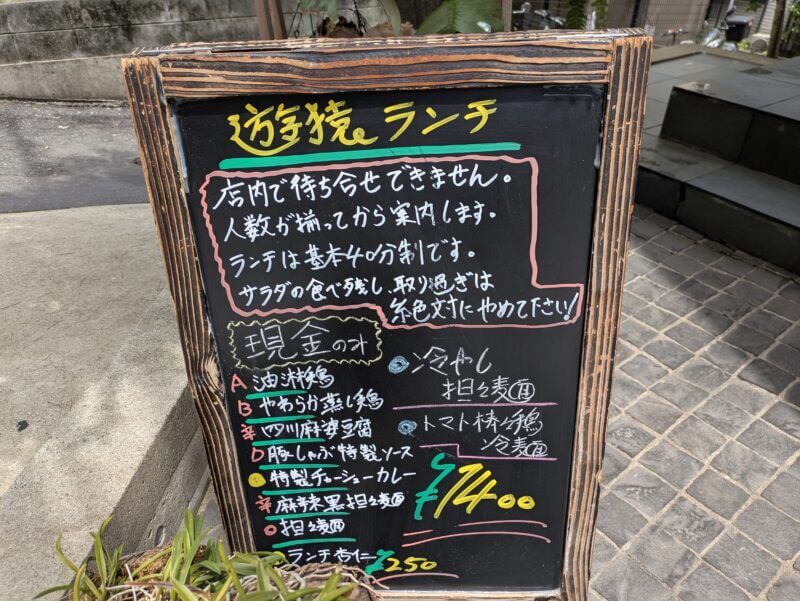 遊猿 ランチ
店内で待ち合せできません。
人数が揃ってから案内します。
ランチは基本40分制です。
サラダの食べ残し、取り過ぎは
絶対にやめて下さい!
現金のみ
A 油淋鶏
B やわらか蒸し鶏
辛 四川麻婆豆腐
D 豚しゃぶ特製ソース
特製チャーシューカレー
辛 麻辣黒担々麺
担々麺
ランチ杏仁 ¥250
冷やし
担々麺
トマト棒々鶏
冷麺
¥1400